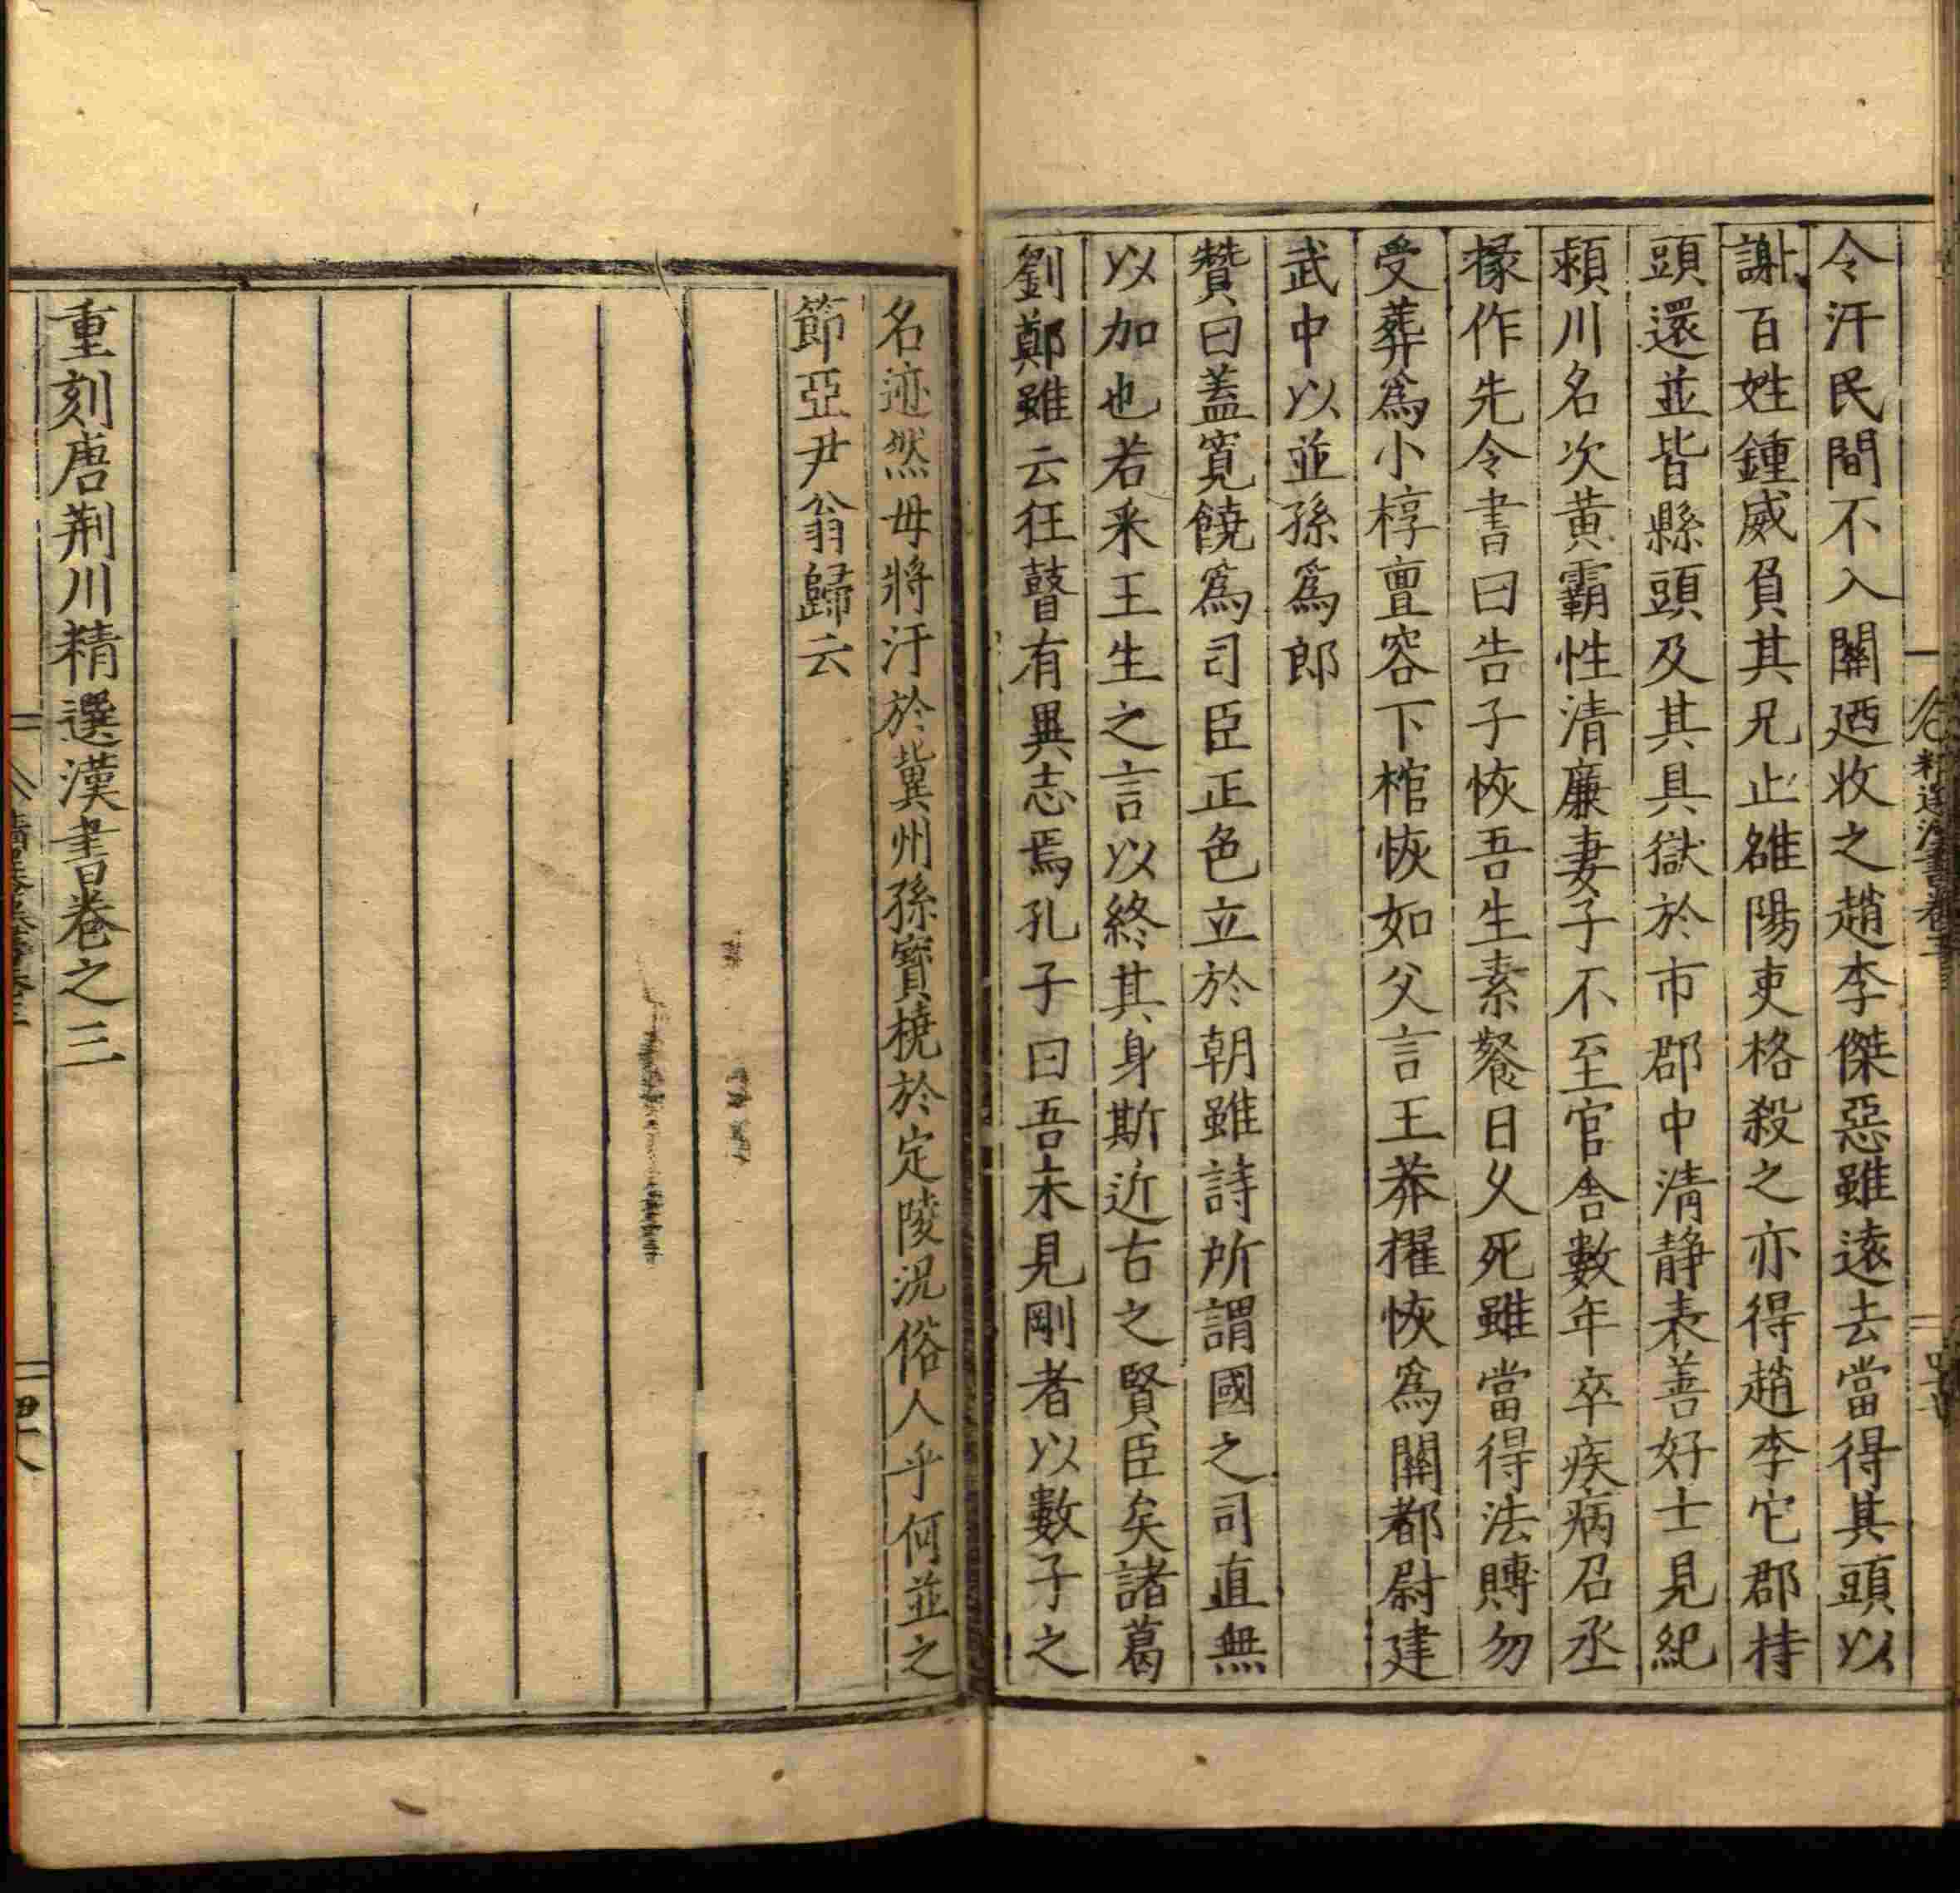 令汙民間不入關廼收之趙李傑惡雖遠去當得其頭以
謝百姓鍾威負其兄止雒陽吏格殺之亦得趙李它郡持
頭還並皆縣頭及其具獄於市郡中清静表善好士見紀
潁川名次黄霸性清廉妻子不至官舎數年卒疾病召丞
掾作先令書曰告子恢吾生素餐日久死雖當得法賻勿
受葬爲小椁亶容下棺恢如父言王莽擢恢爲關都尉建
武中以並孫爲郎
贊曰葢寛饒爲司臣正色立於朝雖詩所謂國之司直無
以加也若采王生之言以終其身斯近古之賢臣矣諸葛
劉鄭雖云狂瞽有異志焉孔子曰吾未見剛者以數子之
名迹然毋將汙於冀州孫寶橈於定陵況俗人乎何並之
節亞尹翁歸云
重刻唐荆川精選漢書卷之三